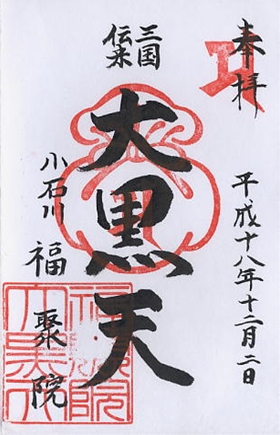 奉拝
平成十八年十二月二日
三国
伝来
大黒天
小石川
福聚院